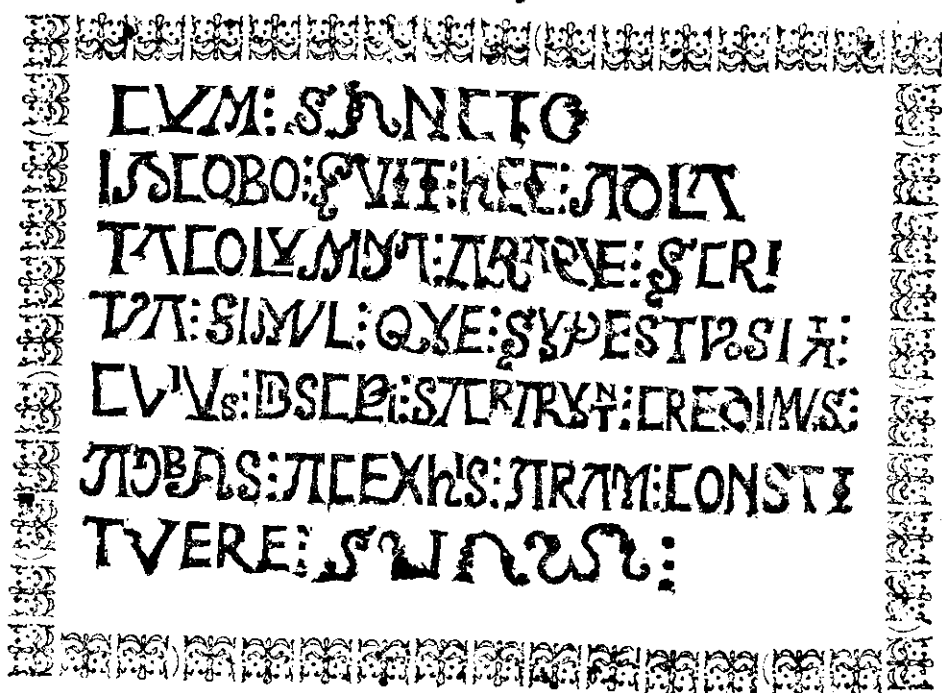 CVM: SANCTO
IACOBO: FVIT: hEC: ADLA
TACOLVMNA: ARAQVE: SCRI
TPA: SIMVL: QVE: SVPESTPOSITA:
CVIVs: DISCPLi: SACRARVNT: CREDIMVS:
ADBAS: ACEXhIS: ARAM: CONSTI
TVERE: